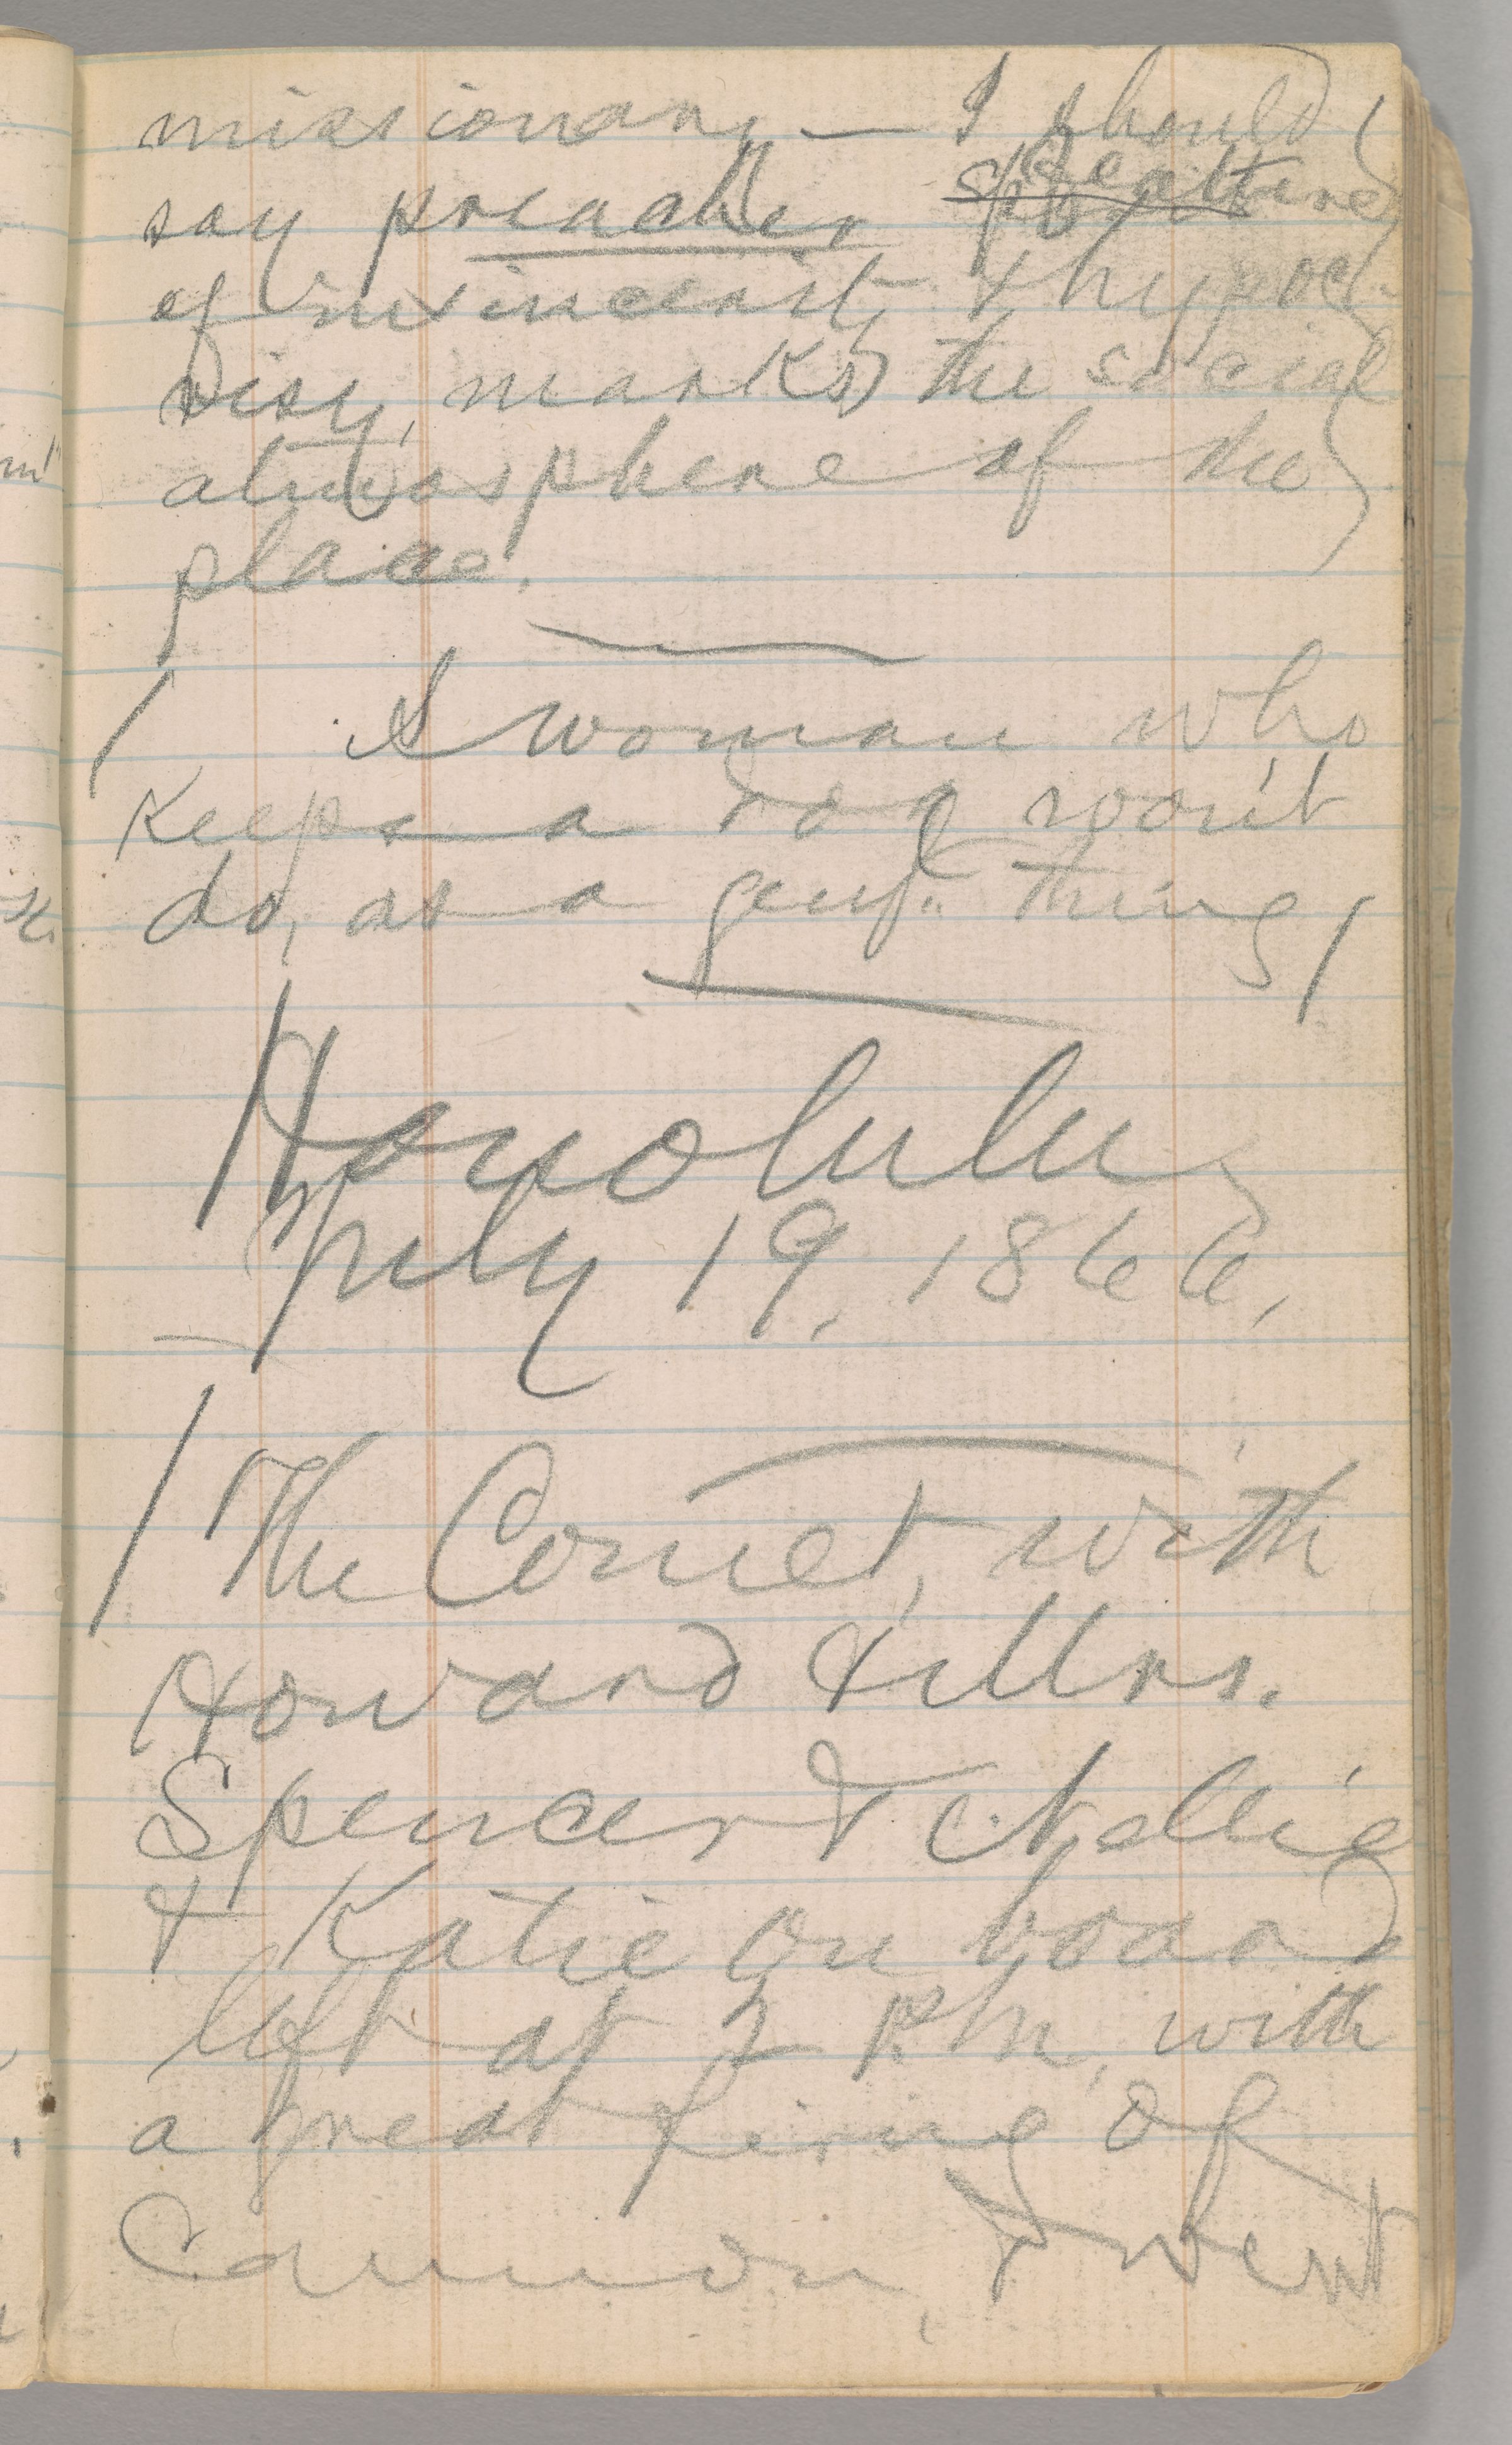 missionary — I should
say preacher feature
of insincerity & hypoc-
risy, marks the social
atmosphere of the
place.
A woman who
keeps a dog won't
do, as a gen'l thing
Honolulu
July 19, 1866,
The Comet, with
Howard & Mrs.
Spencer & Nellie
& Katie on board
left at 2 PM, with
a great firing of
Cannon, & went